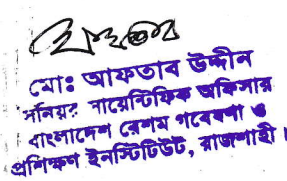 মোঃ আফতাব উদ্দীন
সনিয়র সায়েন্টিফিক অফিসার
বাংলাদেশ রেশম গবেষণা ও
প্রশিক্ষণ ইনস্টিটিউট, রাজশাহী।